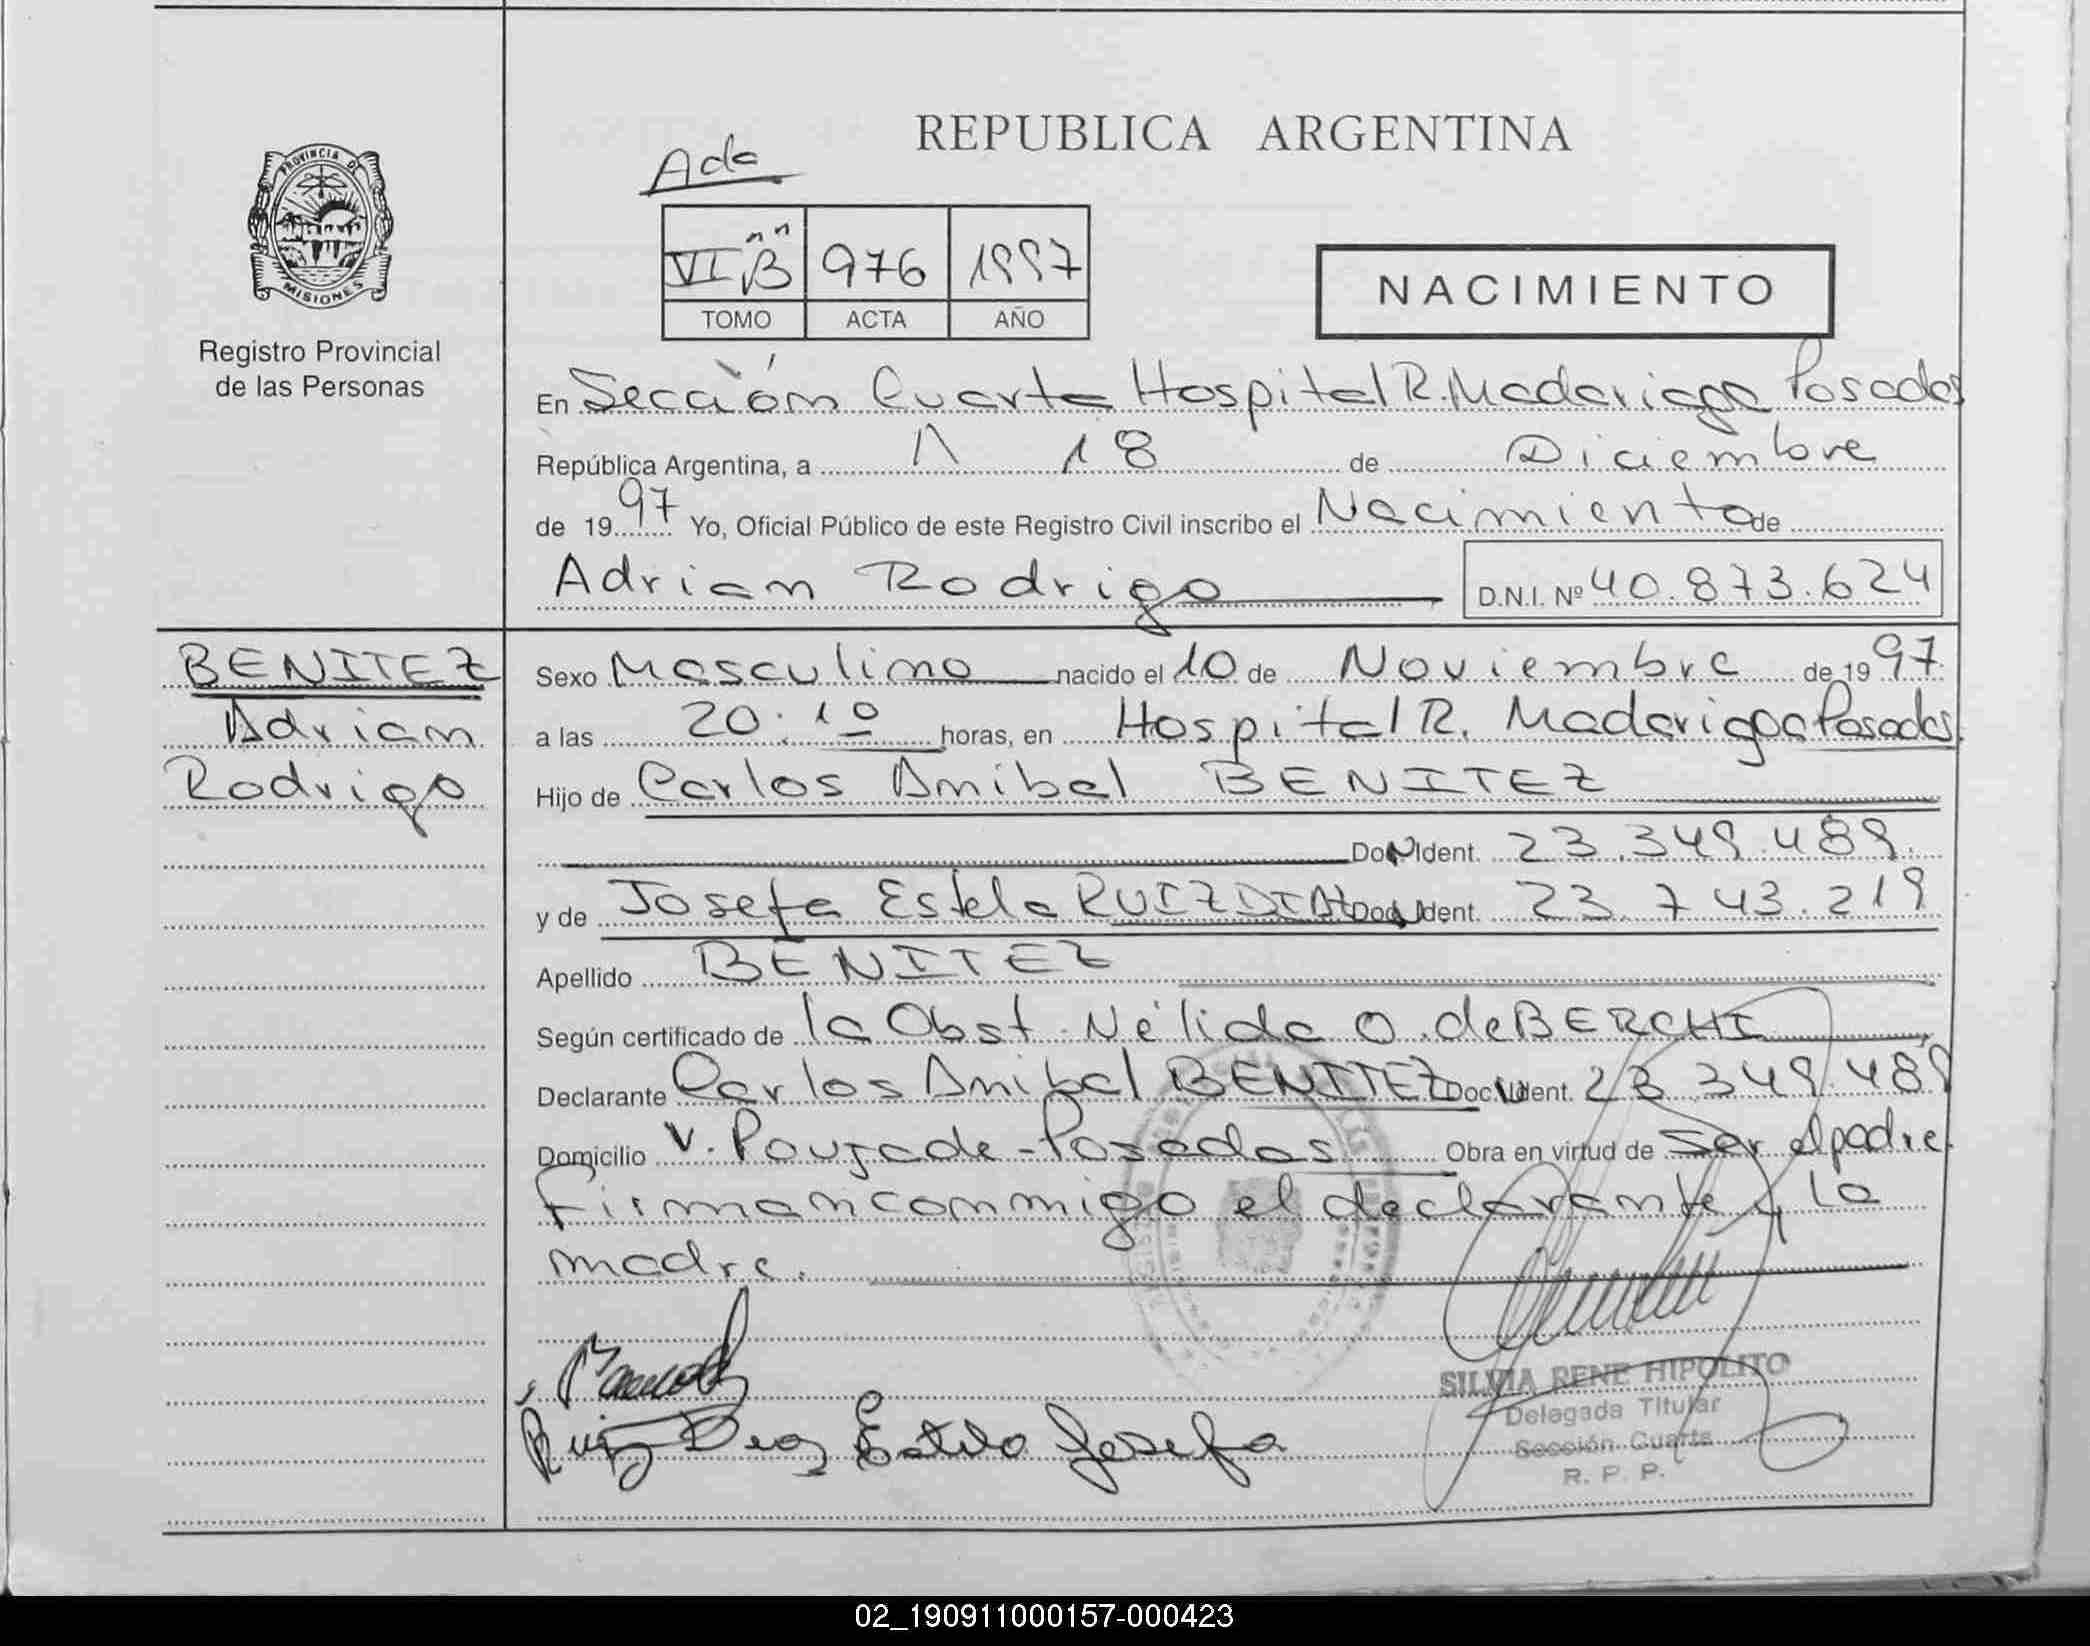 PROVINCIA DE
MISIONES
Registro Provincial
de las Personas
REPUBLICA ARGENTINA
Ada
VI "B" 976 1997
TOMO ACTA AÑO
NACIMIENTO
En Sección Cuarta Hospital R. Madariaga Posadas
República Argentina, a 18 de Diciembre
de 1997 Yo, Oficial Público de este Registro Civil inscribo el Nacimiento de
Adrian Rodrigo D.N.I. Nº 40.873.624
BENITEZ
Adrian
Rodrigo
Sexo Masculino nacido el 10 de Noviembre de 1997.
a las 20:10 horas, en Hospital R. Madariaga Posadas.
Hijo de Carlos Anibal BENITEZ
Ident. 23.349.489.
y de Josefa Estela RUIZ DIAZ Ident. 23.743.219
Apellido BENITEZ
Según certificado de la Obst. Nélida O. de BERCHI
Declarante Carlos Anibal BENITEZ Doc Ident. 23.349.489
Domicilio V. Poujade - Posadas Obra en virtud de ser el padre.
Firman conmigo el declarante y la
madre.
Ruiz Diaz Estela Josefa
SILVIA RENE HIPOLITO
Delegada Titular
Sección Cuarta
R. P. P.
02_190911000157-000423